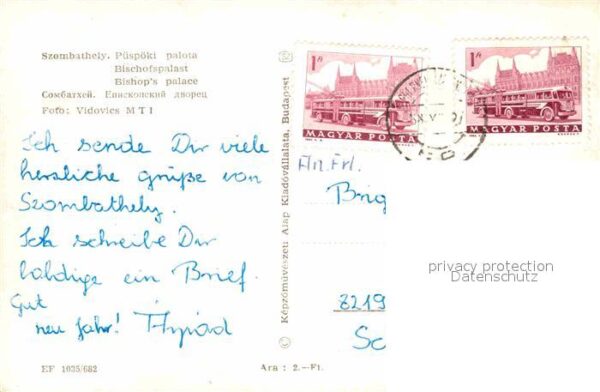 Szombathely. Püspöki palota
Bischofspalast
Bishop's palace
Сомбатхей. Епископский дворец
Foto: Vidovics MTI
Ich sende Dir viele
herzliche grüße von
Szombathely.
Ich schreibe Dir
baldige ein Brief.
Gut
neu Jahr! Árpád
EF 1035/682
Képzőművészeti Alap Kiadóvállalata, Budapest
Ara: 2.–Ft.
1Ft
MAGYAR POSTA
1Ft
MAGYAR POSTA
An. Frl.
Brig
8219
Sc
privacy protection
Datenschutz